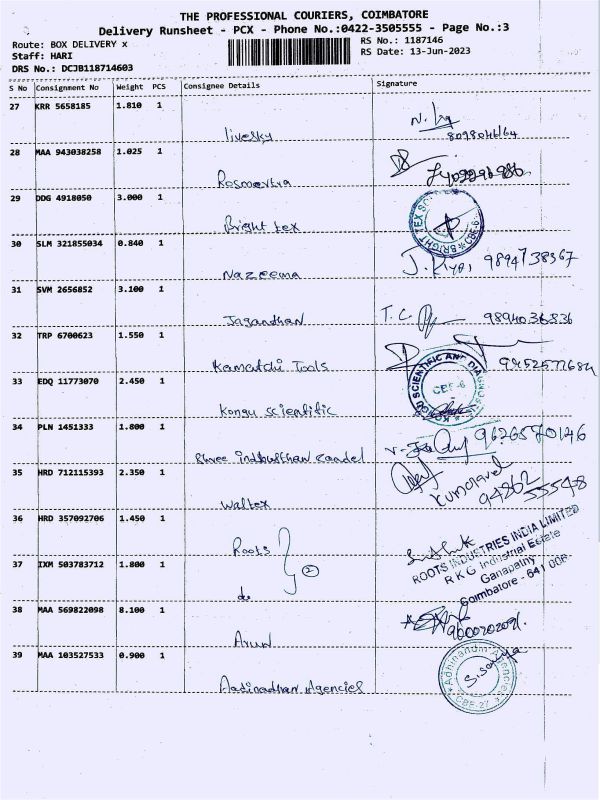 THE PROFESSIONAL COURIERS, COIMBATORE
Delivery Runsheet - PCX - Phone No.:0422-3505555 - Page No.:3
Route: BOX DELIVERY x
RS No.: 1187146
Staff: HARI
RS Date: 13-Jun-2023
DRS No.: DCJB118714603
S No Consignment No Weight PCS Consignee Details Signature
27 KRR 5658185 1.810 1
livesky
28 MAA 943038258 1.025 1
Rosmertra
29 DDG 4918050 3.000 1
Bright tex
BRIGHT TEX CBE-6
30 SLM 321855034 0.840 1
Nazeema 9894738367
31 SVM 2656852 3.100 1
Jaganathan T.C. 9894036836
32 TRP 6700623 1.550 1
Kamatchi Tools
33 EDQ 11773070 2.450 1
KONGU SCIENTIFIC AND CBE-6
Kongu scientific
34 PLN 1451333 1.800 1
9626570146
Shree
35 HRD 712115393 2.350 1
Waltex
94862 55548
36 HRD 357092706 1.450 1
Roots
37 IXM 503783712 1.800 1
2
do
ROOTS INDUSTRIES INDIA LIMITED
R K G Industrial Estate
Ganapathy
Coimbatore - 641 006
38 MAA 569822098 8.100 1
Arun
39 MAA 103527533 0.900 1
Aadinadhan Agencies
Adhinandh Agencies CBE-27